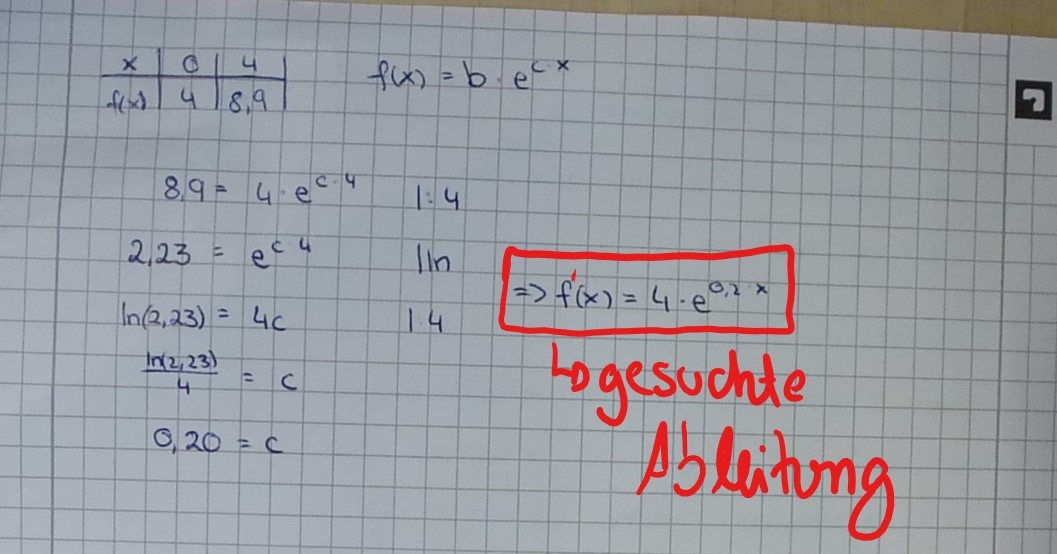 x | 0 | 4
f(x) | 4 | 8,9
f(x) = b · e^(c·x)
8,9 = 4 · e^(c·4) |:4
2,23 = e^(c·4) |ln
ln(2,23) = 4c |:4
ln(2,23)/4 = c
0,20 = c
=> f'(x) = 4 · e^(0,2·x)
↳ gesuchte
Ableitung